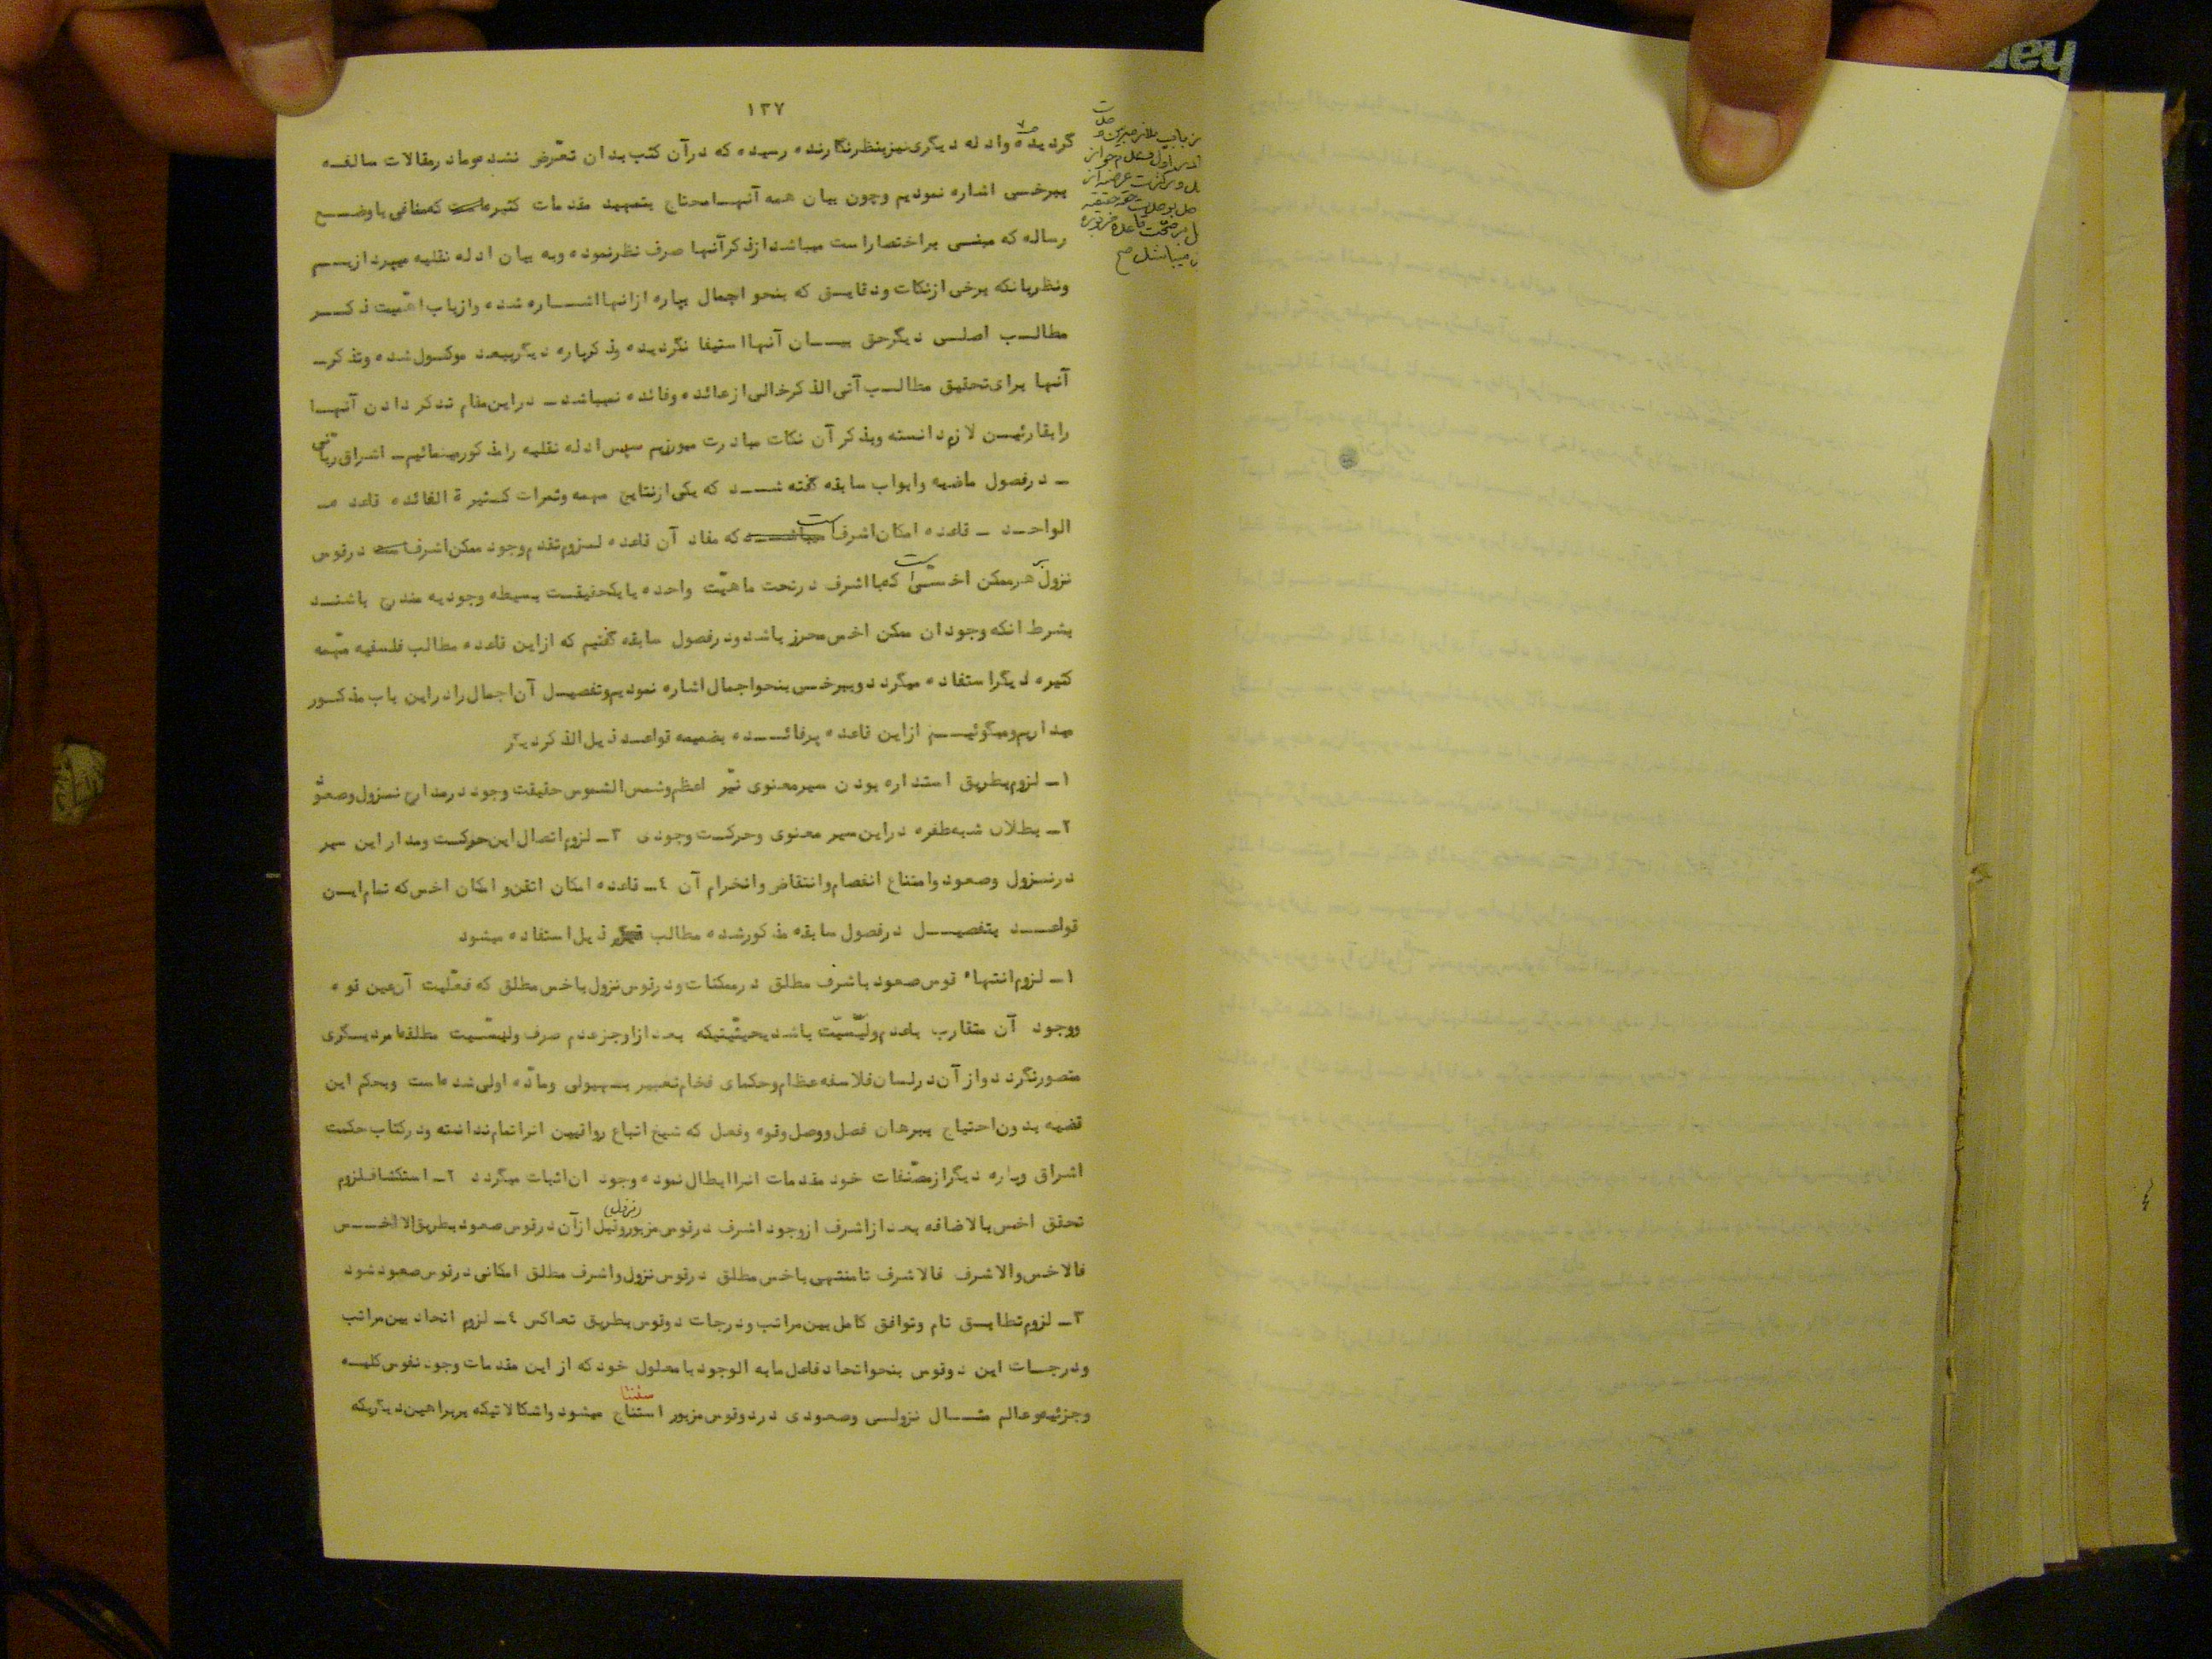 ۱۳۷
گردیده وادله دیگری نیز بنظر نگارنده رسیده که درآن کتب بدان تعرّض نشده وما در مقالات سالفه
ببرخی اشاره نمودیم وچون بیان همه آنها محتاج بتمهید مقدمات کثیره است که منافی باوضع
رساله که مبنی براختصار است میباشد از ذکر آنها صرف نظر نموده وبه بیان ادله نقلیه میپردازیم
ونظر بانکه برخی ازنکات ودقایق که بنحو اجمال بپاره ازانها اشاره شده وازباب اهمّیت ذکر
مطالب اصلی دیگر حق بیان آنها استیفا نگردیده وذکر پاره دیگر ببعد موکول شده وتذکر
آنها برای تحقیق مطالب آتی الذکر خالی ازعائده وفائده نمیباشد ـ دراین مقام تذکر دادن آنها
رابقارئین لازم دانسته وبذکر آن نکات مبادرت میورزیم سپس ادله نقلیه را مذکور مینمائیم ـ اشراق ربّانی
ـ درفصول ماضیه وابواب سابقه گفته شد که یکی ازنتایج مهمه وثمرات کثیرة الفائده قاعده
الواحد ـ قاعده امکان اشرف است که مفاد آن قاعده لزوم تقدم وجود ممکن اشرف درقوس
نزول بر هرممکن اخسّی است که با اشرف درتحت ماهیّت واحده یا یکحقیقت بسیطه وجودیه مندرج باشند
بشرط انکه وجود ان ممکن اخس محرز باشد ودرفصول سابقه گفتیم که ازاین قاعده مطالب فلسفیه مهّمه
کثیره دیگر استفاده میگردد وببرخی بنحو اجمال اشاره نمودیم وتفصیل آن اجمال را دراین باب مذکور
میداریم ومیگوئیم ازاین قاعده پرفائده بضمیمه قواعد ذیل الذکر دیگر
۱ـ لزوم بطریق استداره بودن سیر معنوی نیّر اعظم وشمس الشموس حقیقت وجود درمدارج نزول وصعود
۲ـ بطلان شبه طفره دراین سیر معنوی وحرکت وجودی ۳ـ لزوم اتصال این حرکت ومدار این سیر
درنزول وصعود وامتناع انفصام وانتقاض وانخرام آن ٤ـ قاعده امکان اتقن و امکان اخس که تمام این
قواعد بتفصیل درفصول سابقه مذکور شده مطالب ذیل استفاده میشود
۱ـ لزوم انتهاء قوس صعود باشرف مطلق درممکنات ودرقوس نزول باخس مطلق که فعلّیت آن عین قوه
ووجود آن متقارب باعدم ولیّسیّت باشد بحیثیّتیکه بعد ازاو جز عدم صرف ولیسّیت مطلقه امر دیگری
متصور نگردد واز آن درلسان فلاسفه عظام وحکمای فخام تعبیر بهیولی ومادّه اولی شده است وبحکم این
قضیه بدون احتیاج ببرهان فصل ووصل وقوه وفعل که شیخ اتباع رواقیین انرا تمام ندانسته ودرکتاب حکمت
اشراق وپاره دیگر از مصّنفات خود مقدمات انرا ابطال نموده وجود ان اثبات میگردد ۲ـ استکشاف لزوم
تحقق اخس بالاضافه بعد ازاشرف ازوجود اشرف درقوس مزبور (نزول) وقبل ازآن درقوس صعود بطریق الاخس
فالاخس والاشرف فالاشرف تا منتهی باخس مطلق درقوس نزول واشرف مطلق امکانی درقوس صعود شود
۳ـ لزوم تطابق تام وتوافق کامل بین مراتب ودرجات دوقوس بطریق تعاکس ٤ـ لزوم اتحاد بین مراتب
ودرجات این دوقوس بنحو اتحاد فاعل مابه الوجود بامعلول خود که از این مقدمات وجود نفوس کلیه
وجزئیه وعالم مثال نزولی وصعودی دردوقوس مزبور استنتاج میشود واشکالاتیکه بربراهین دیگریکه